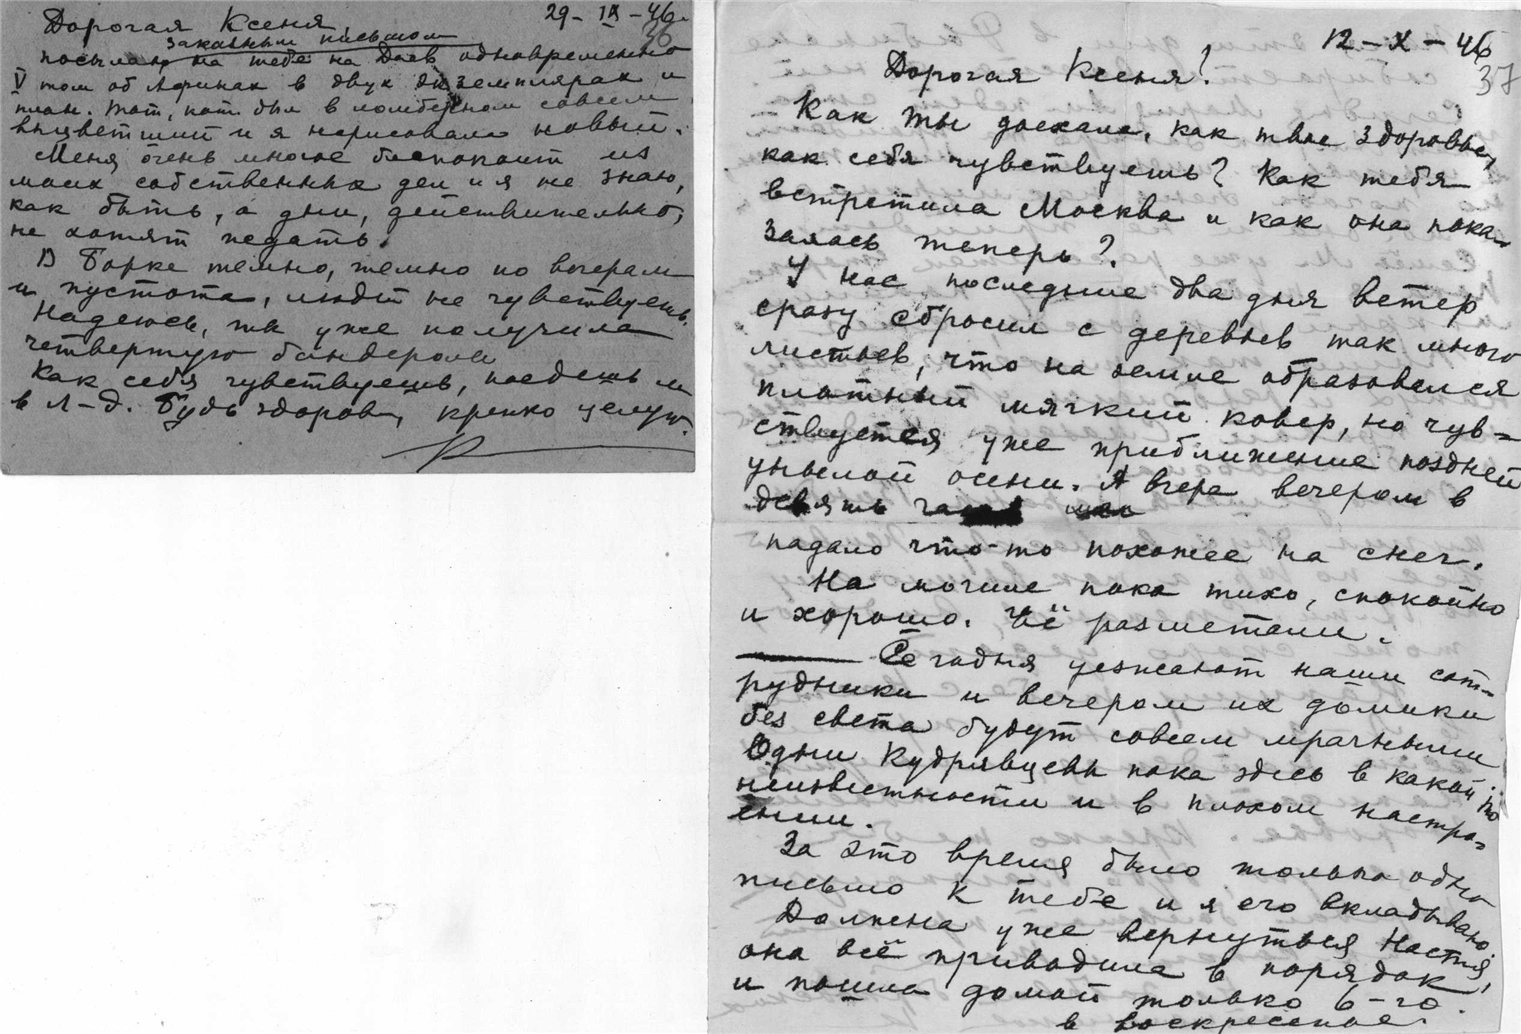 29 – IX – 46.
36
Дорогая Ксеня,
заказным письмом
посылаю на тебе на Даев одновременно
V том об Афинах в двух экземплярах и
план. Тот, кот. был в ломберном совсем
выцветший и я нарисовала новый.
Меня очень многое беспокоит из
моих собственных дел и я не знаю,
как быть, а дни, действительно,
не хотят ждать.
В Борке темно, темно по вечерам
и пустота, людей не чувствуешь.
Надеюсь, ты уже получила
четвертую бандероль
Как себя чувствуешь, поедешь ли
в Л-д. Будь здорова, крепко целую.
12 – X – 46
37
Дорогая Ксеня!
Как ты доехала, как твое здоровье,
как себя чувствуешь? Как тебя
встретила Москва и как она пока-
залась теперь?
У нас последние два дня ветер
сразу сбросил с деревьев так много
листьев, что на земле образовался
плотный мягкий ковер, но чув-
ствуется уже приближение поздней
унылой осени. А вчера вечером в
девять
падало что-то похожее на снег.
На могиле пока тихо, спокойно
и хорошо. Всё разметали.
Сегодня уезжают наши сот-
рудники и вечером их домики
без света будут совсем мрачными
Одни Кудрявцевы пока здесь в какой то
неизвестности и в плохом настро-
ении.
За это время было только одно
письмо к тебе и я его вкладываю.
Должна уже вернуться Настя,
она всё приводила в порядок,
и пошла домой только 6-го.
в воскресенье.